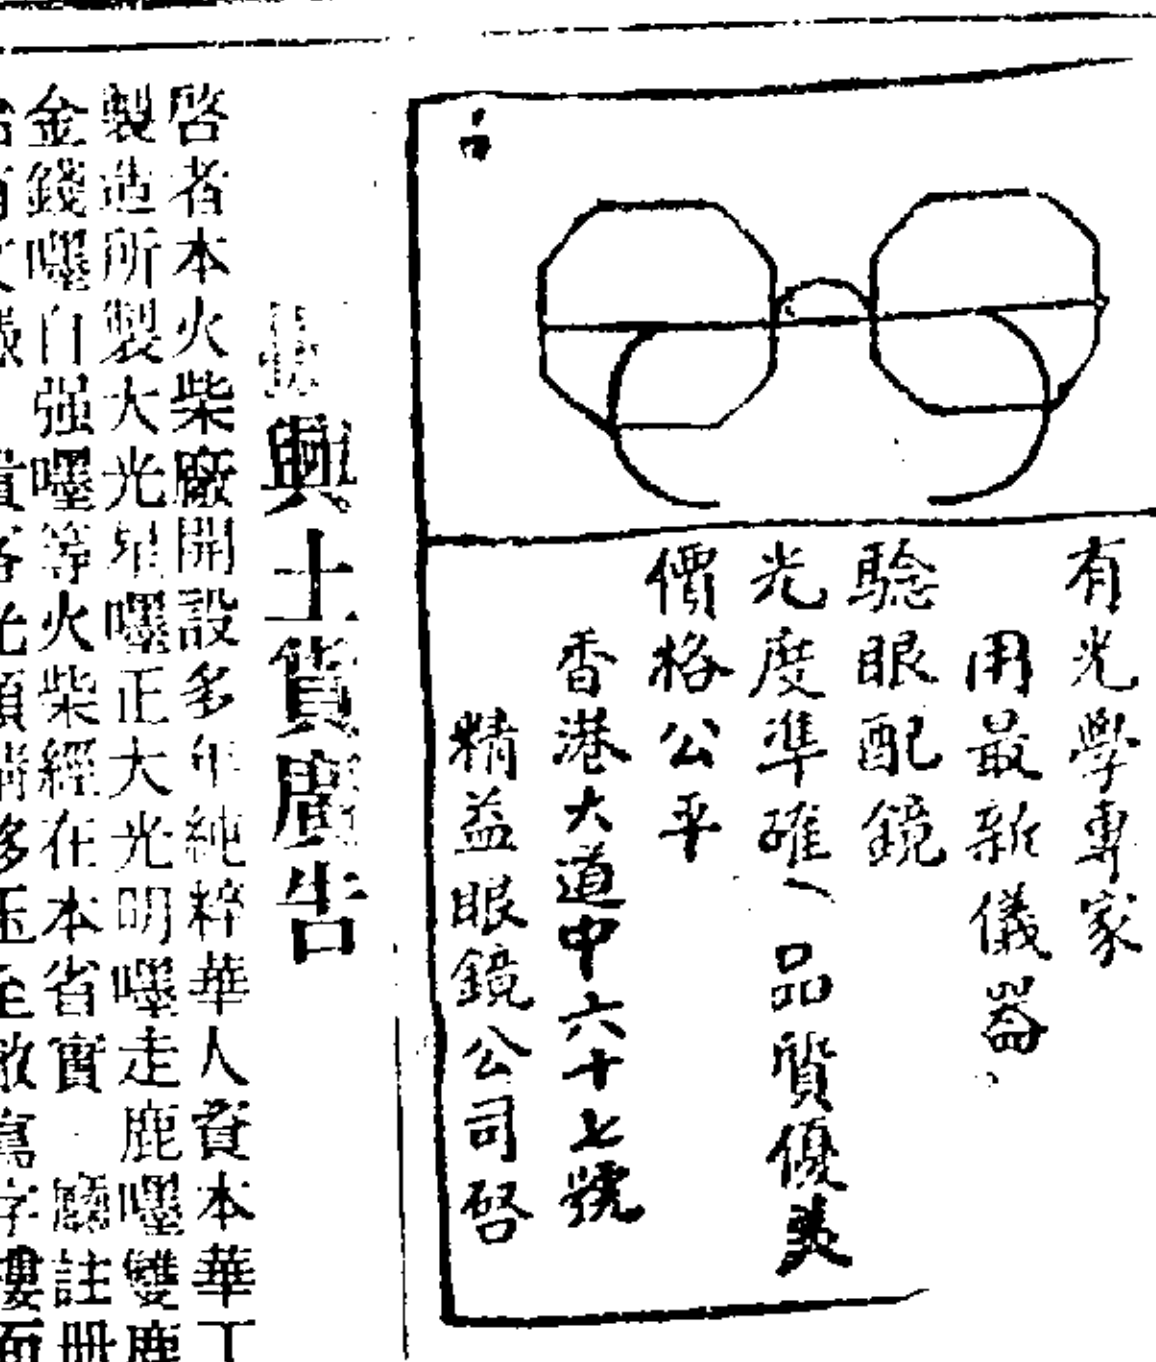 有光學專家
用最新儀器、
驗眼配鏡
光度準確、品質優美
價格公平
香港大道中六十七號
精益眼鏡公司啓
興士貨廣告
啓者本火柴廠開設多年純粹華人資本華工
製造所製大光星嘜正大光明嘜走鹿嘜雙鹿
金錢嘜自强嘜等火柴經在本省實 廳註册